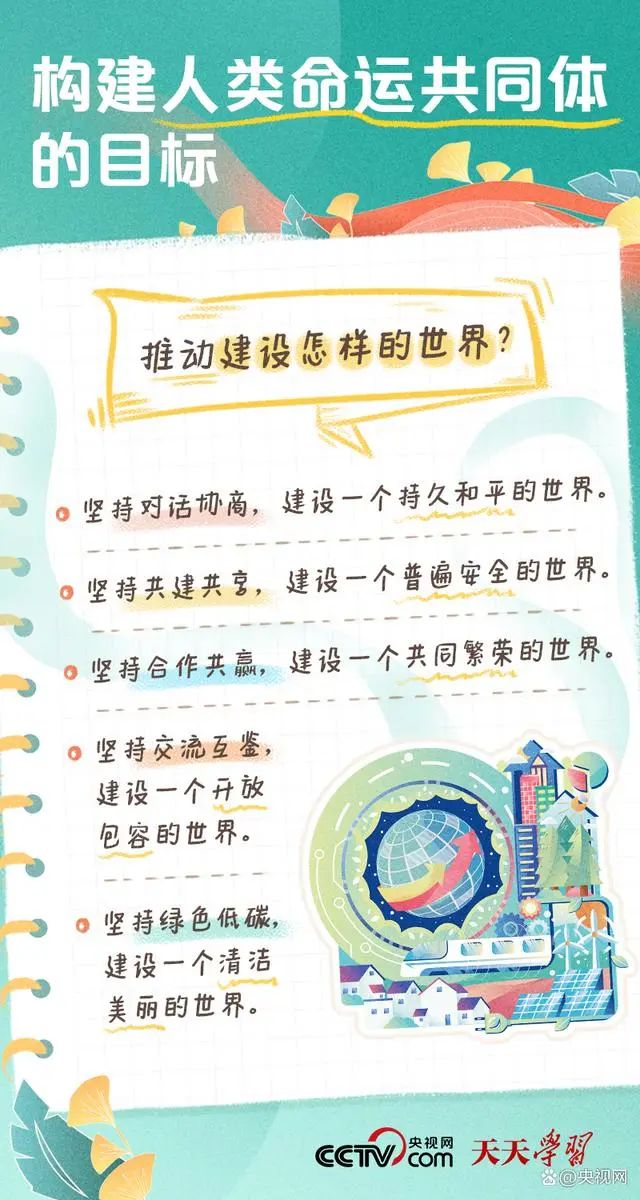 构建人类命运共同体
的目标
推动建设怎样的世界?
坚持对话协商,建设一个持久和平的世界。
坚持共建共享,建设一个普遍安全的世界。
坚持合作共赢,建设一个共同繁荣的世界。
坚持交流互鉴,
建设一个开放
包容的世界。
坚持绿色低碳,
建设一个清洁
美丽的世界。
CCTV 央视网 .com 天天学習
@央视网